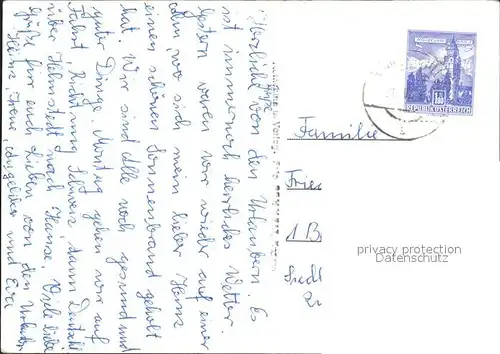 Herzlichst von den Urlaubern. Es
ist immer noch herrliches Wetter.
Gestern waren wir wieder auf einer
Alm, wo sich mein lieber Heinz
einen schönen Sonnenbrand geholt
hat. Wir sind alle noch gesund und
guter Dinge. Montag gehen wir auf
Fahrt, Richtung Schweiz, dann Deutschl.
über Helmstedt nach Hause. Viele liebe
Grüße für euch Lieben von den Urlaubern
Heinz, Irene, Angelika und Eva
REPUBLIK ÖSTERREICH
Familie
1 B
privacy protection
Datenschutz